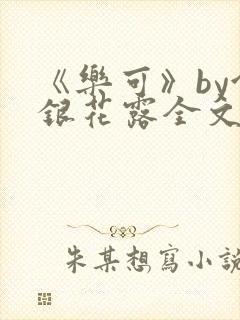 《樂可》by
銀花露全文
朱某想寫小說